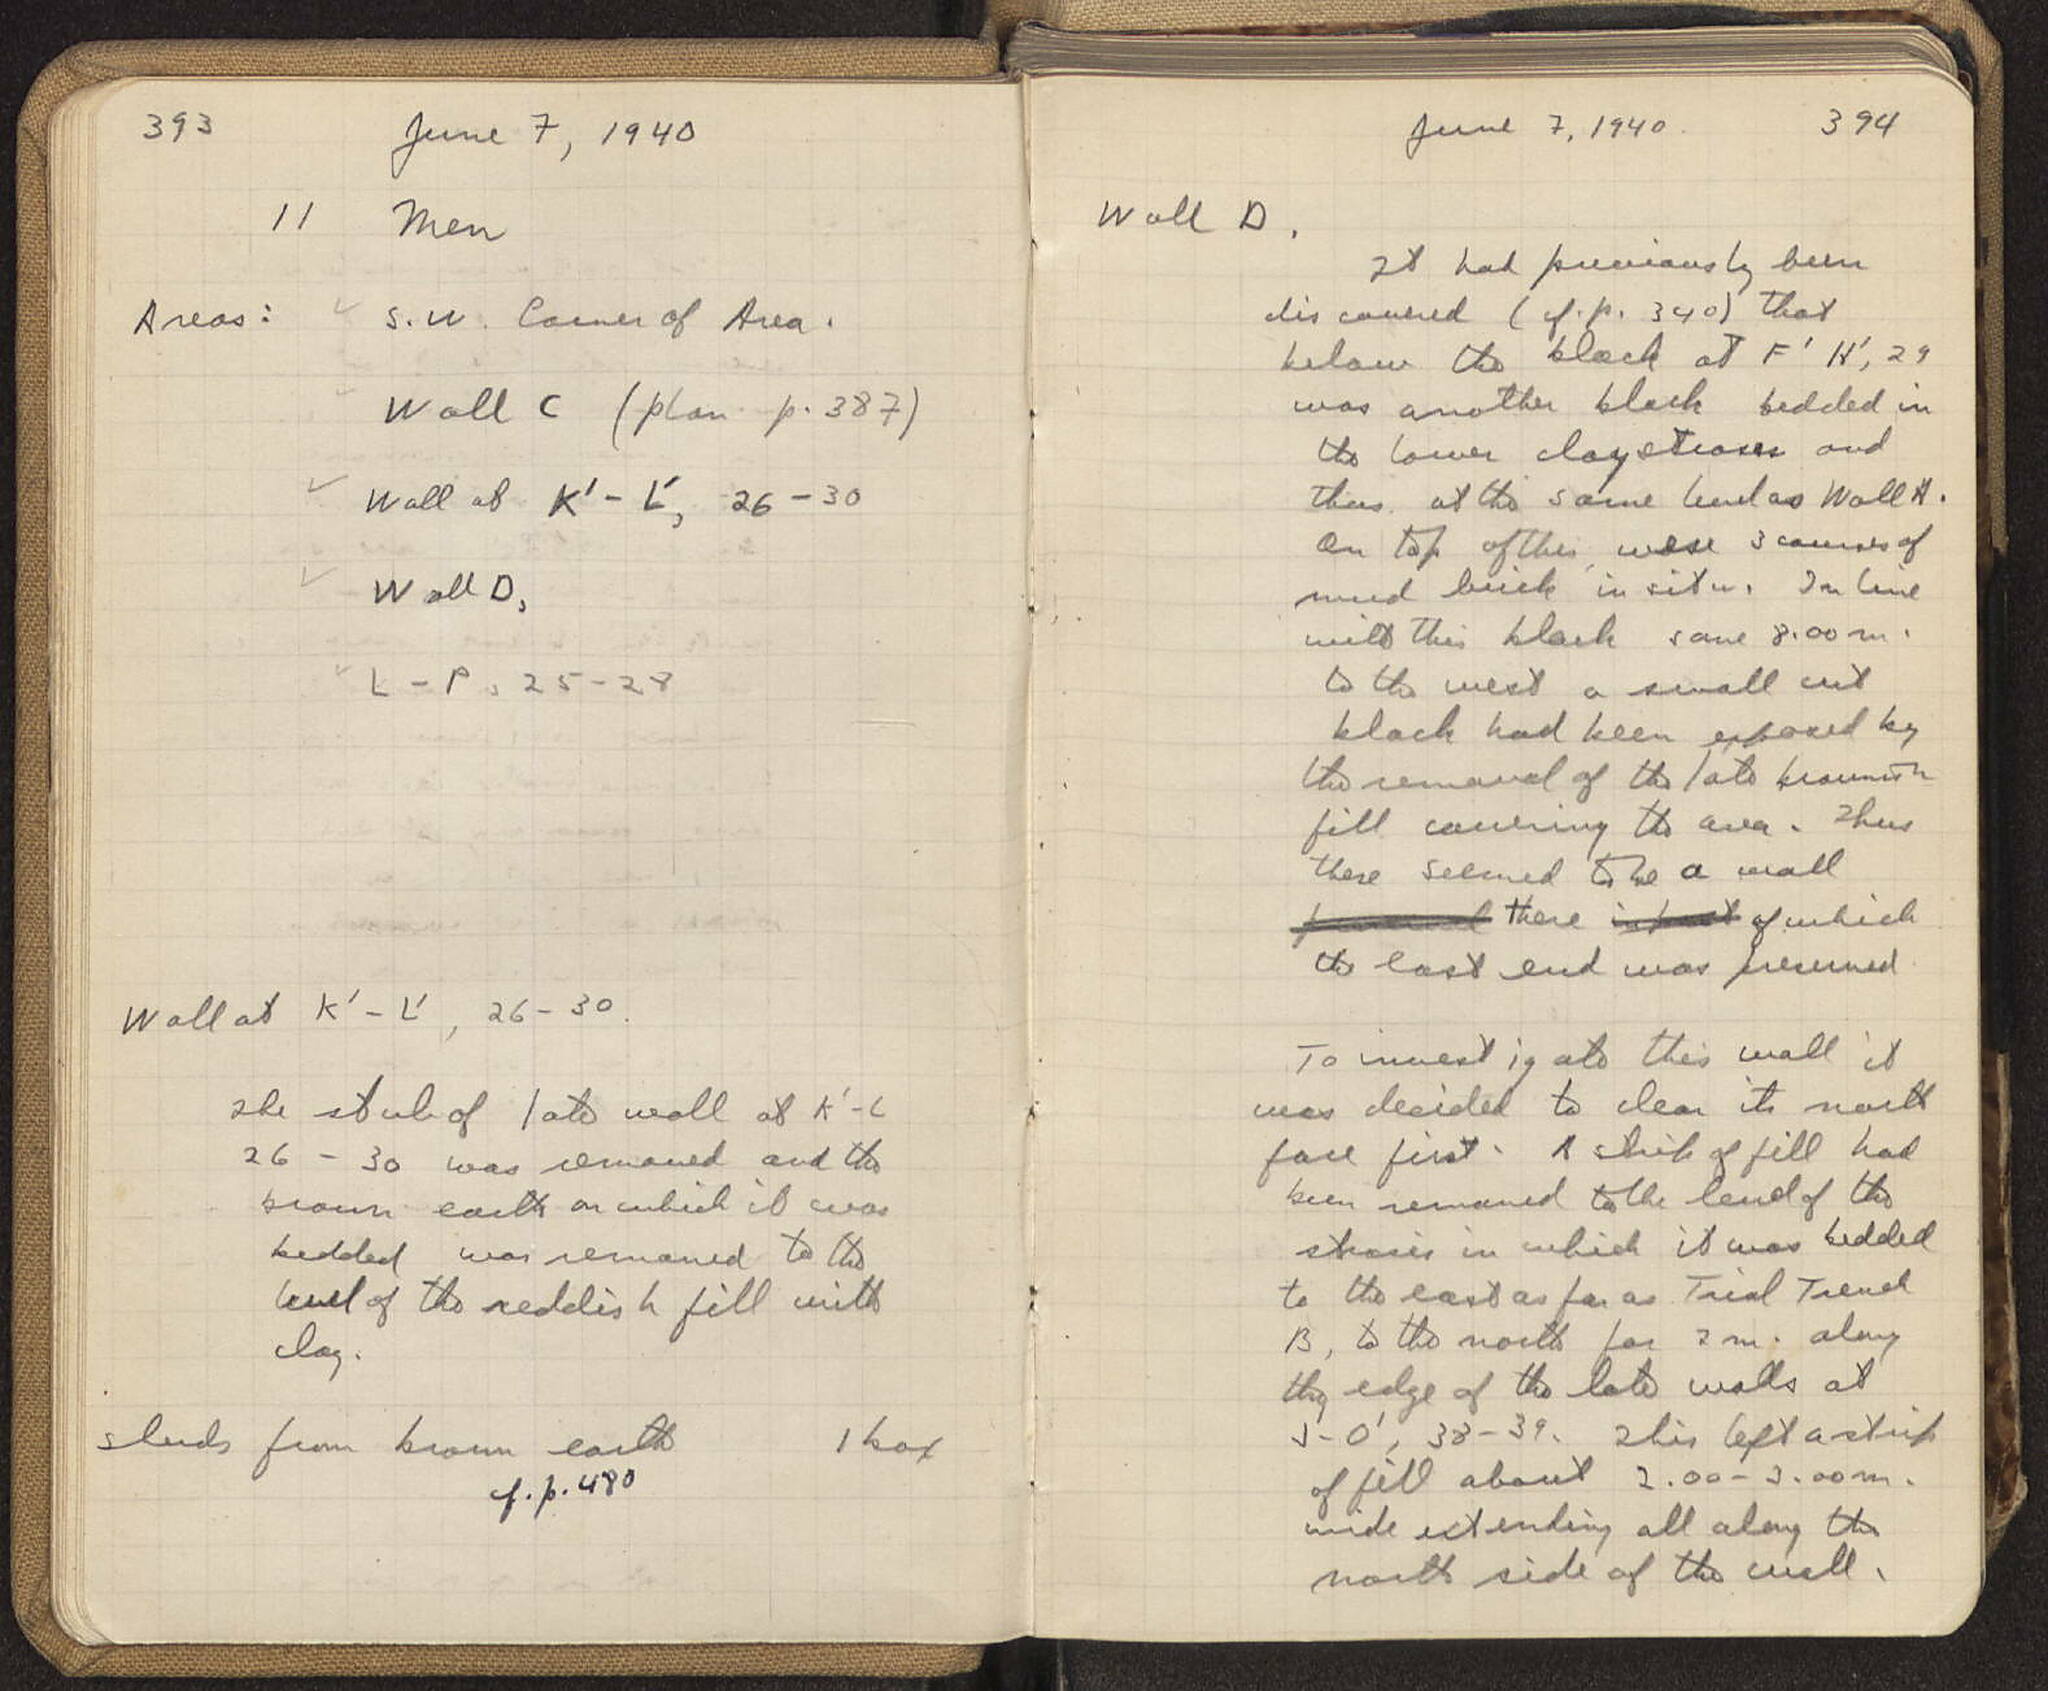 393 June 7, 1940
11 Men
Areas: ✓ S.W. Corner of Area.
✓ Wall C (plan p. 387)
✓ Wall at K' - L', 26 - 30
✓ Wall D,
✓ L - P, 25 - 28
Wall at K' - L', 26 - 30.
The stub of late wall at K' - L
26 - 30 was removed and the
brown earth on which it was
bedded was removed to the
level of the reddish fill with
clay.
sherds from brown earth 1 box
cf. p. 480
June 7, 1940. 394
Wall D.
It had previously been
discovered (cf. p. 340) that
below the block at F' H', 29
was another block bedded in
the lower clay stroses and
thus at the same level as Wall A.
On top of this, were 3 courses of
mud brick in situ. In line
with this block some 8.00 m.
to the west a small cut
block had been exposed by
the removal of the late brownish
fill covering the area. Thus
there seemed to be a wall
there of which
the east end was preserved
To investigate this wall it
was decided to clear its north
face first. A strip of fill had
been removed to the level of the
strosis in which it was bedded
to the east as far as Trial Trench
B, to the north for 2 m. along
the edge of the late walls at
J - O', 38 - 39. This left a strip
of fill about 2.00 - 3.00 m.
wide extending all along the
north side of the wall.